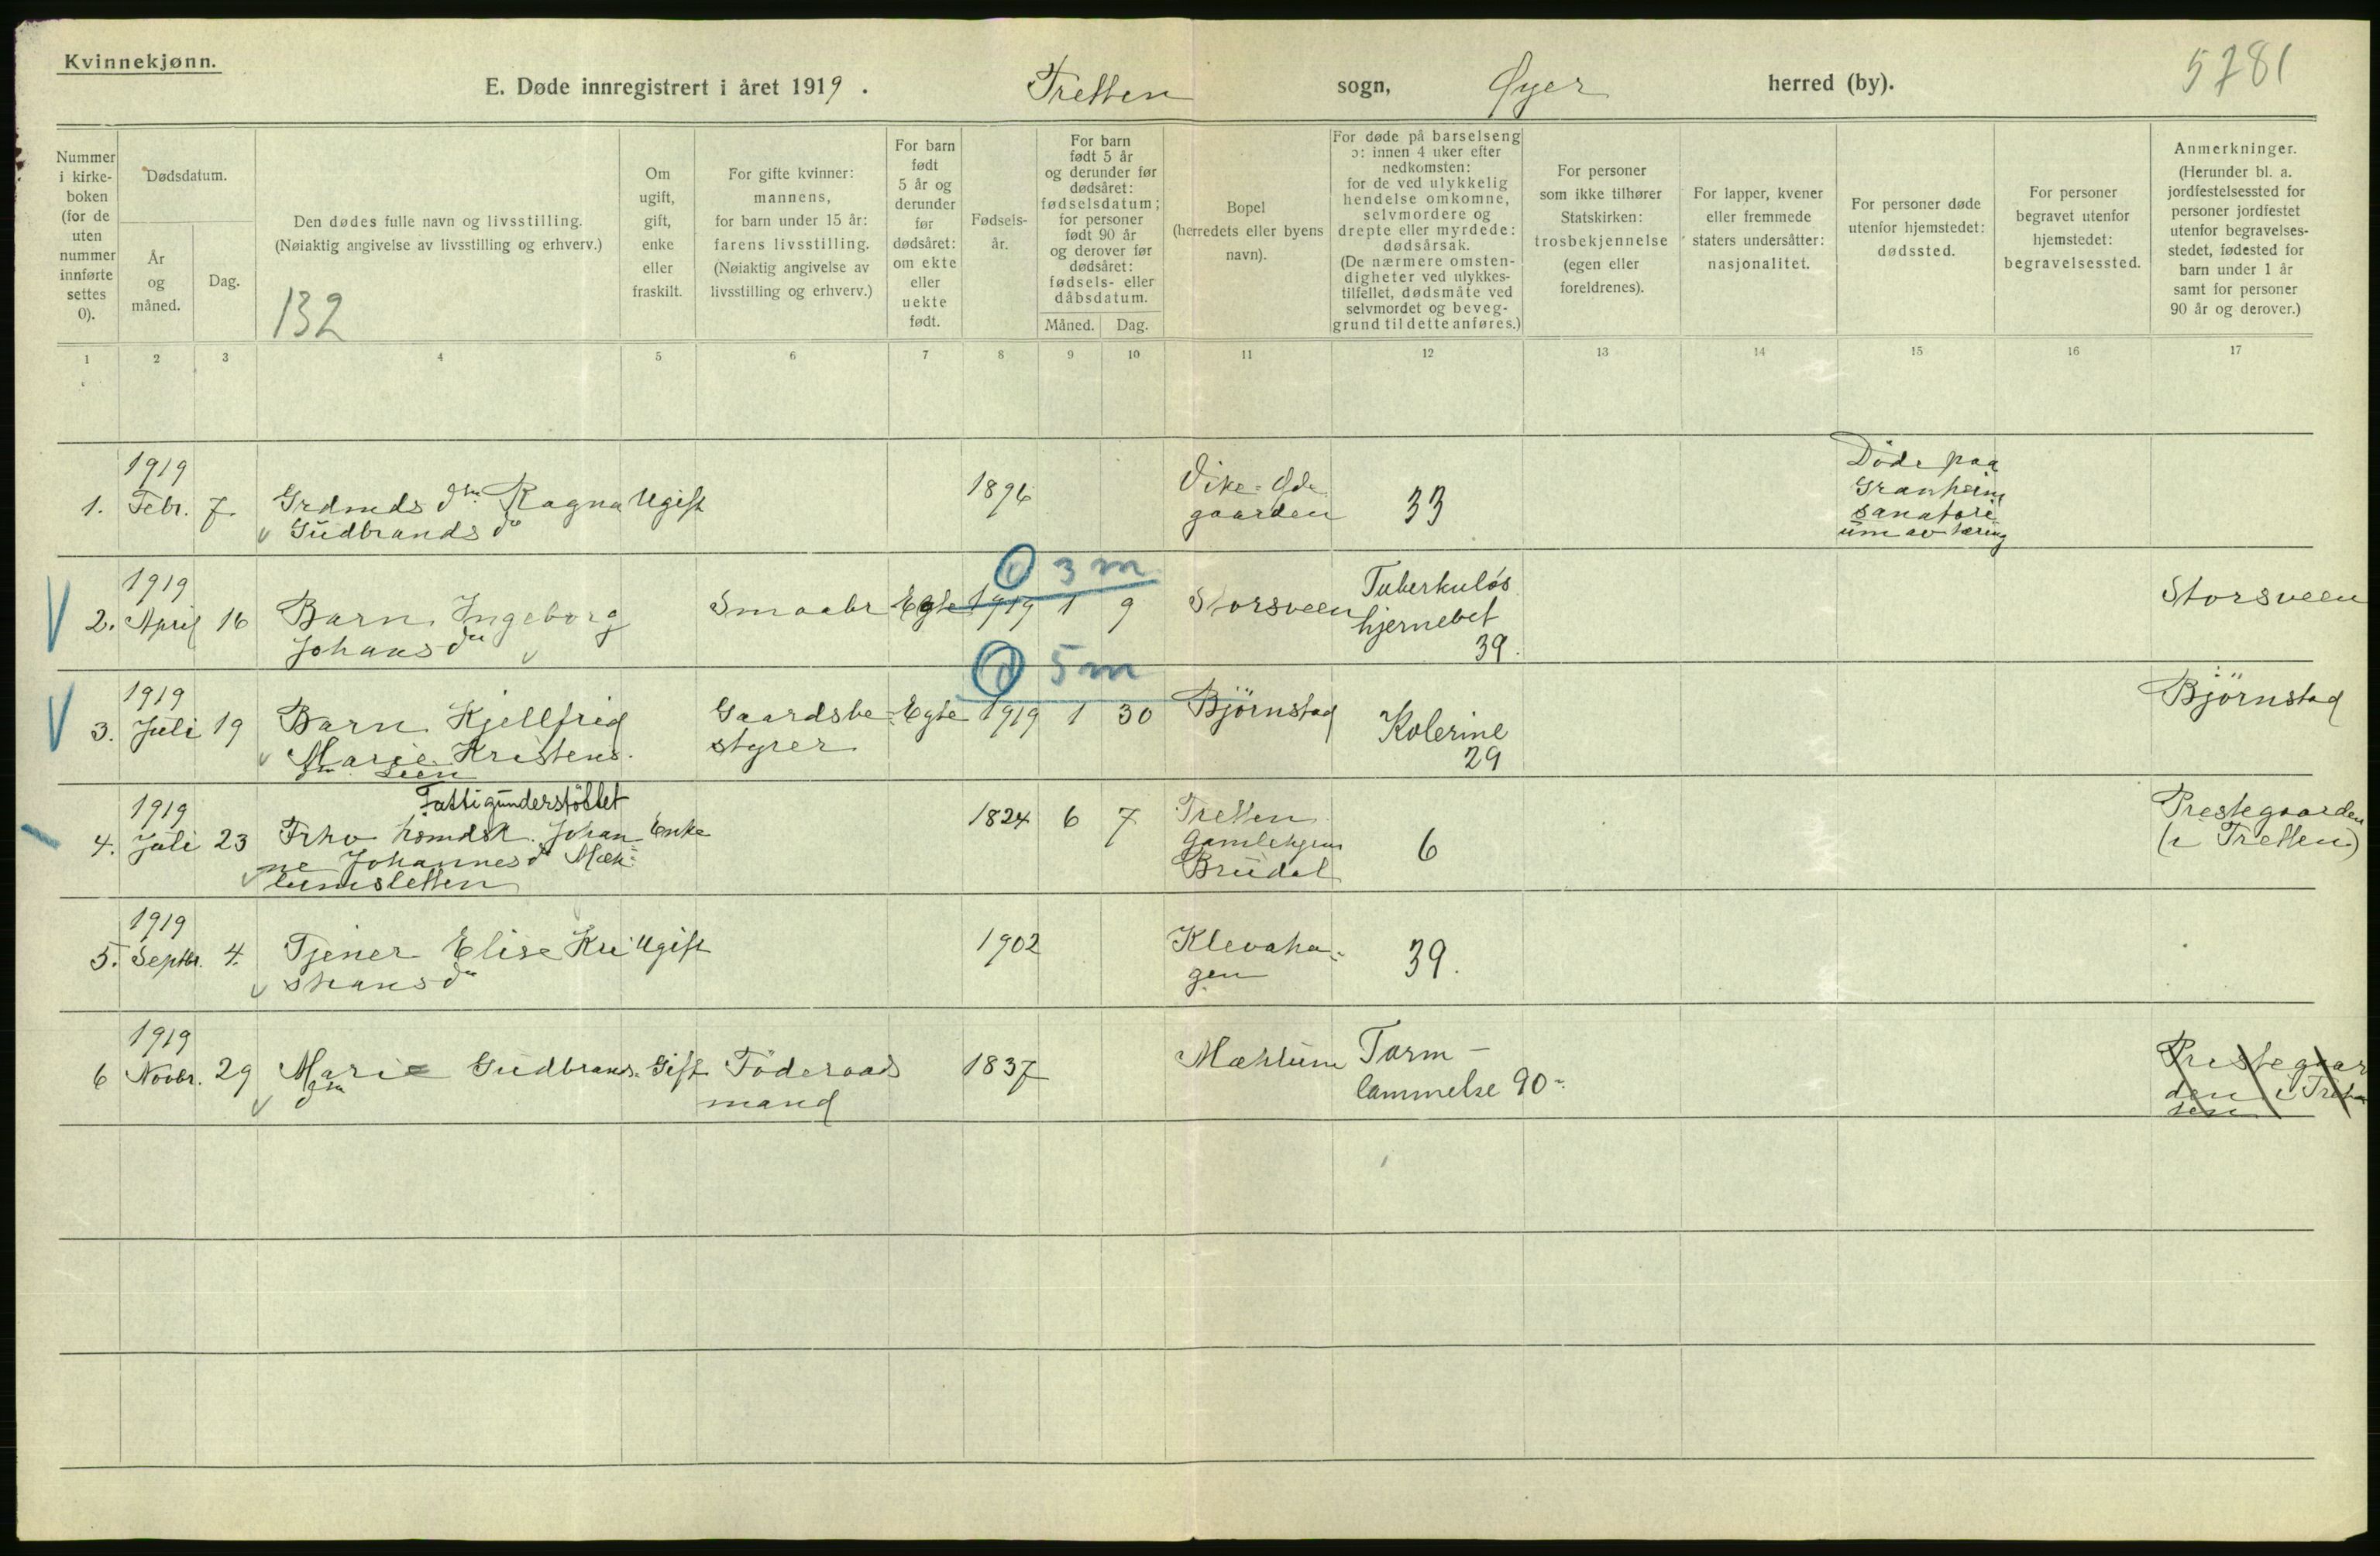 Kvinnekjønn.
E. Døde innregistrert i året 1919. Tretten sogn, Øyer herred (by). 5781
Nummer i kirke-boken (for de uten nummer innførte settes 0).
Dødsdatum.
År og måned.
Dag.
Den dødes fulle navn og livsstilling.
(Nøiaktig angivelse av livsstilling og erhverv.)
132
Om ugift, gift, enke eller fraskilt.
For gifte kvinner: mannens, for barn under 15 år: farens livsstilling. (Nøiaktig angivelse av livsstilling og erhverv.)
For barn født 5 år og derunder før dødsåret: om ekte eller uekte født.
Fødsels-år.
For barn født 5 år og derunder før dødsåret: fødselsdatum; for personer født 90 år og derover før dødsåret: fødsels- eller dåbsdatum.
Måned. Dag.
Bopel (herredets eller byens navn).
For døde på barselseng ɔ: innen 4 uker efter nedkomsten: for de ved ulykkelig hendelse omkomne, selvmordere og drepte eller myrdede: dødsårsak. (De nærmere omsten-digheter ved ulykkes-tilfellet, dødsmåte ved selvmordet og beveg-grund til dette anføres.)
For personer som ikke tilhører Statskirken: trosbekjennelse (egen eller foreldrenes).
For lapper, kvener eller fremmede staters undersåtter: nasjonalitet.
For personer døde utenfor hjemstedet: dødssted.
For personer begravet utenfor hjemstedet: begravelsessted.
Anmerkninger. (Herunder bl. a. jordfestelsessted for personer jordfestet utenfor begravelses-stedet, fødested for barn under 1 år samt for personer 90 år og derover.)
1 2 3 4 5 6 7 8 9 10 11 12 13 14 15 16 17
1919
1. Febr. 7. Grdmds dtr Ragna Ugift 1896
Gudbrandsdtr
gaarden 33
Døde paa
Granheim
sanatori
um av tæring
3 m
1919
2. April 16 Barn Ingeborg Smaabr Egte 1919 1 9 Storsveen
Johansdtr
Tuberkuløs
hjernebet
39.
Storsveen
5 m
1919
3. Juli 19 Barn Kjellfrid Gaardsbe Egte 1919 1 30 Bjørnstad
Marie Kristens. styrer
Kolerine
29
Bjørnstad
Fattigunderstøttet
1919
4. Juli 23 Fhv husmdsk. Johan Enke 1824 6 7 Tretten
ne Johannesd Mæh
lumsletten
Gamlehjem
Brudal
6
Prestegaarden
(i Tretten)
1919
5. Septbr. 4. Tjener Elise Kri Ugift 1902 Klevaha
stiansdtr gen
39.
1919
6 Novbr. 29 Marie Gudbrands Gift Føderaads 1837 Mæhlum Tarm-
mand lammelse 90
Prestegaar
den i Tret
ten